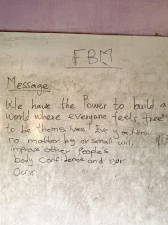 FBM
Message
We have the Power to build a
world where everyone feels free
to be themselves. Every action
no matter big or small will
improve other People's
body confidence and
Our